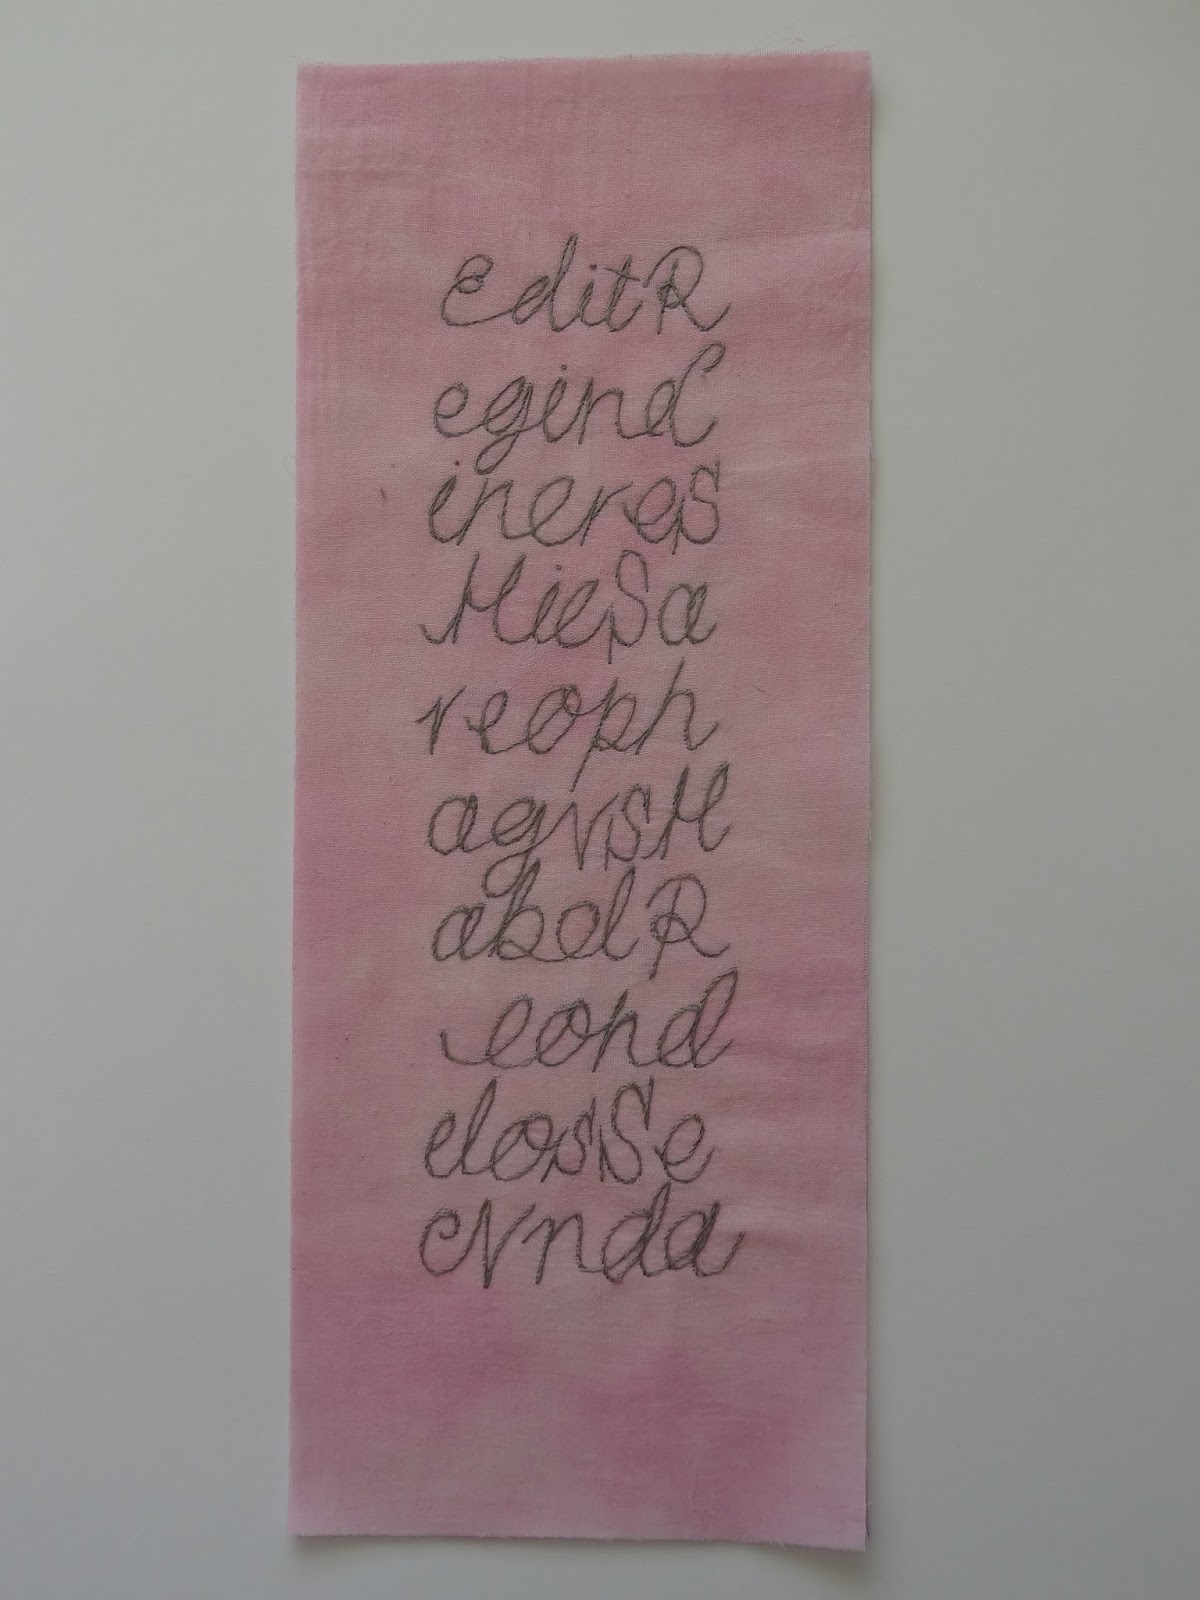 EditR
eginC
ineres
MieSa
reoph
agvsM
abelR
eond
elosSe
cVnda